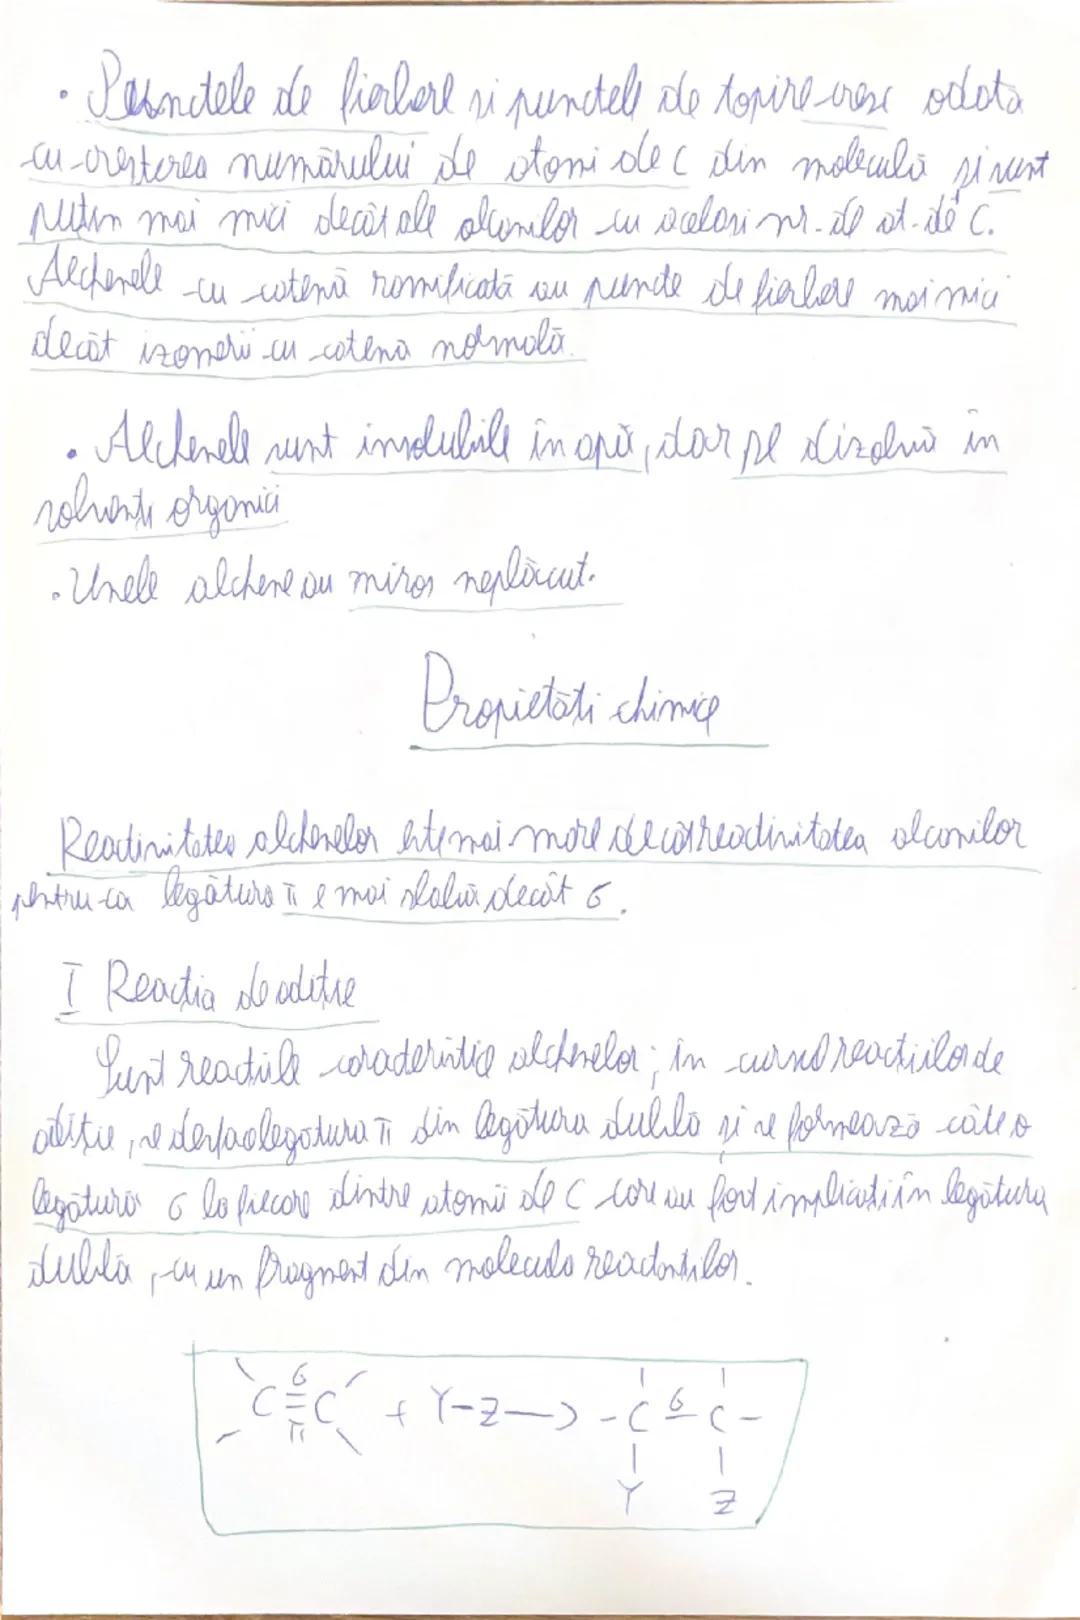 • Punctele de fierbere si punctele de topire cresc odata
cu cresterea numărului de atomi de C din moleculă si sunt
putin mai mici decât ale alcanilor cu acelasi nr. de at. de C.
Alchenele cu catenă ramificată au puncte de fierbere mai mici
decât izomerii cu catena normală.
• Alchenele sunt insolubile în apă, dar se dizolvă în
solventi organici
• Unele alchene au miros neplăcut.
Propietăti chimice
Reactivitatea alchenelor este mai mare decât reactivitatea alcanilor
pentru ca legătura π e mai slabă decât σ.
I Reactia de aditie
Sunt reactiile caracteristice alchenelor; în cursul reactiilor de
aditie, se desface legătura π din legătura dublă si se formează câte o
legătură σ la fiecare dintre atomii de C care au fost implicati în legătura
dublă, cu un fragment din molecula reactantilor.
C σ = π C + Y-Z → -C σ - C -
Y Z